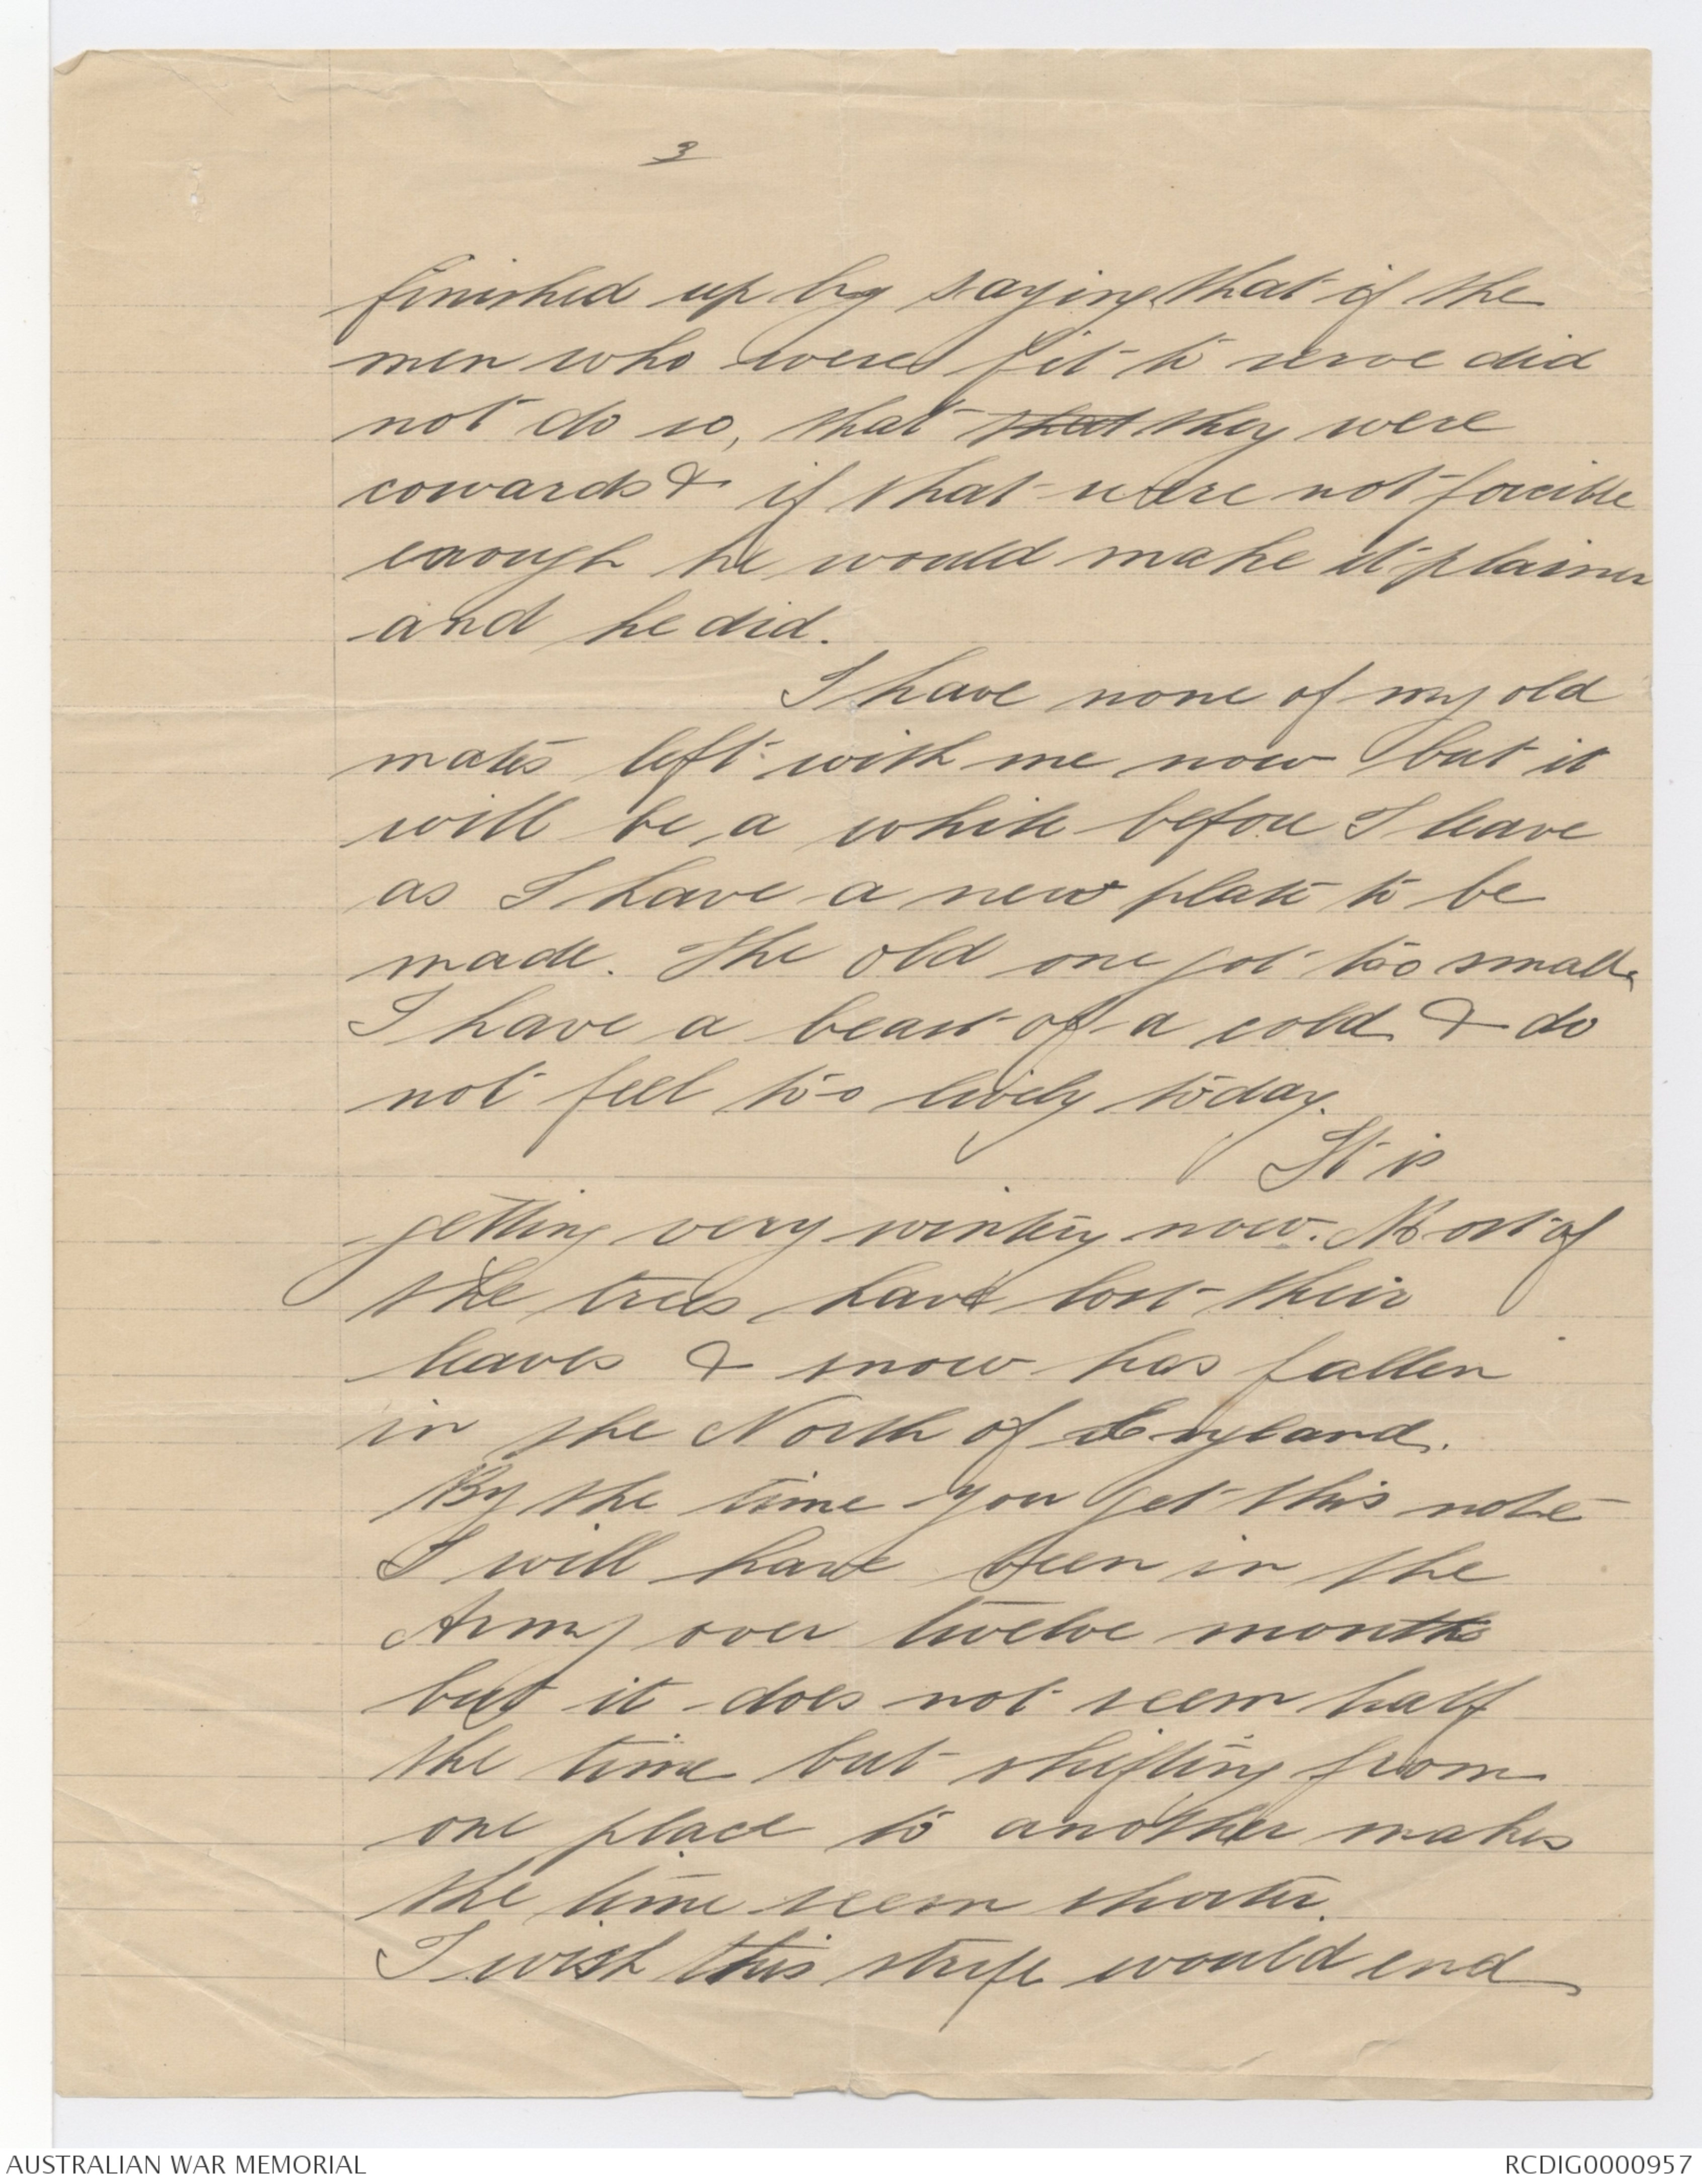 3
finished up by saying that if the
men who were fit to serve did
not do so, that that they were
cowards & if that were not forcible
enough he would make it plainer
and he did.
I have none of my old
mates left with me now but it
will be a while before I leave
as I have a new plate to be
made. The old one got too small.
I have a beast of a cold & do
not feel too lively today.
It is
getting very wintery now. Most of
the trees have lost their
leaves & snow has fallen
in the North of England.
By the time you get this note
I will have been in the
Army over twelve months
but it does not seem half
the time but shifting from
one place to another makes
the time seem shorter.
I wish this strife would end
AUSTRALIAN WAR MEMORIAL
RCDIG0000957